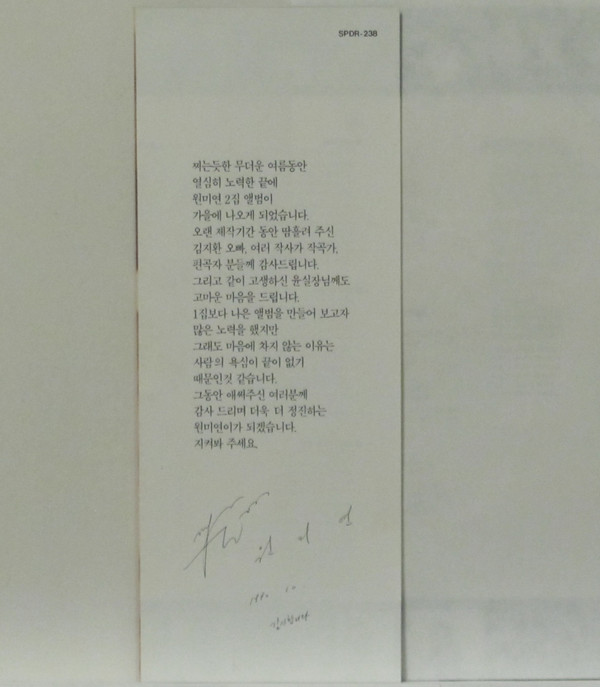 SPDR-238
찌는듯한 무더운 여름동안
열심히 노력한 끝에
원미연 2집 앨범이
가을에 나오게 되었습니다.
오랜 제작기간 동안 땀흘려 주신
김지환 오빠, 여러 작사가 작곡가,
편곡자 분들께 감사드립니다.
그리고 같이 고생하신 윤실장님께도
고마운 마음을 드립니다.
1집보다 나은 앨범을 만들어 보고자
많은 노력을 했지만
그래도 마음에 차지 않는 이유는
사람의 욕심이 끝이 없기
때문인것 같습니다.
그동안 애써주신 여러분께
감사 드리며 더욱 더 정진하는
원미연이가 되겠습니다.
지켜봐 주세요.
원 미 연